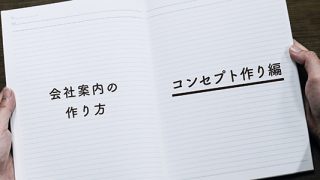 会社案内の
作り方
コンセプト作り編